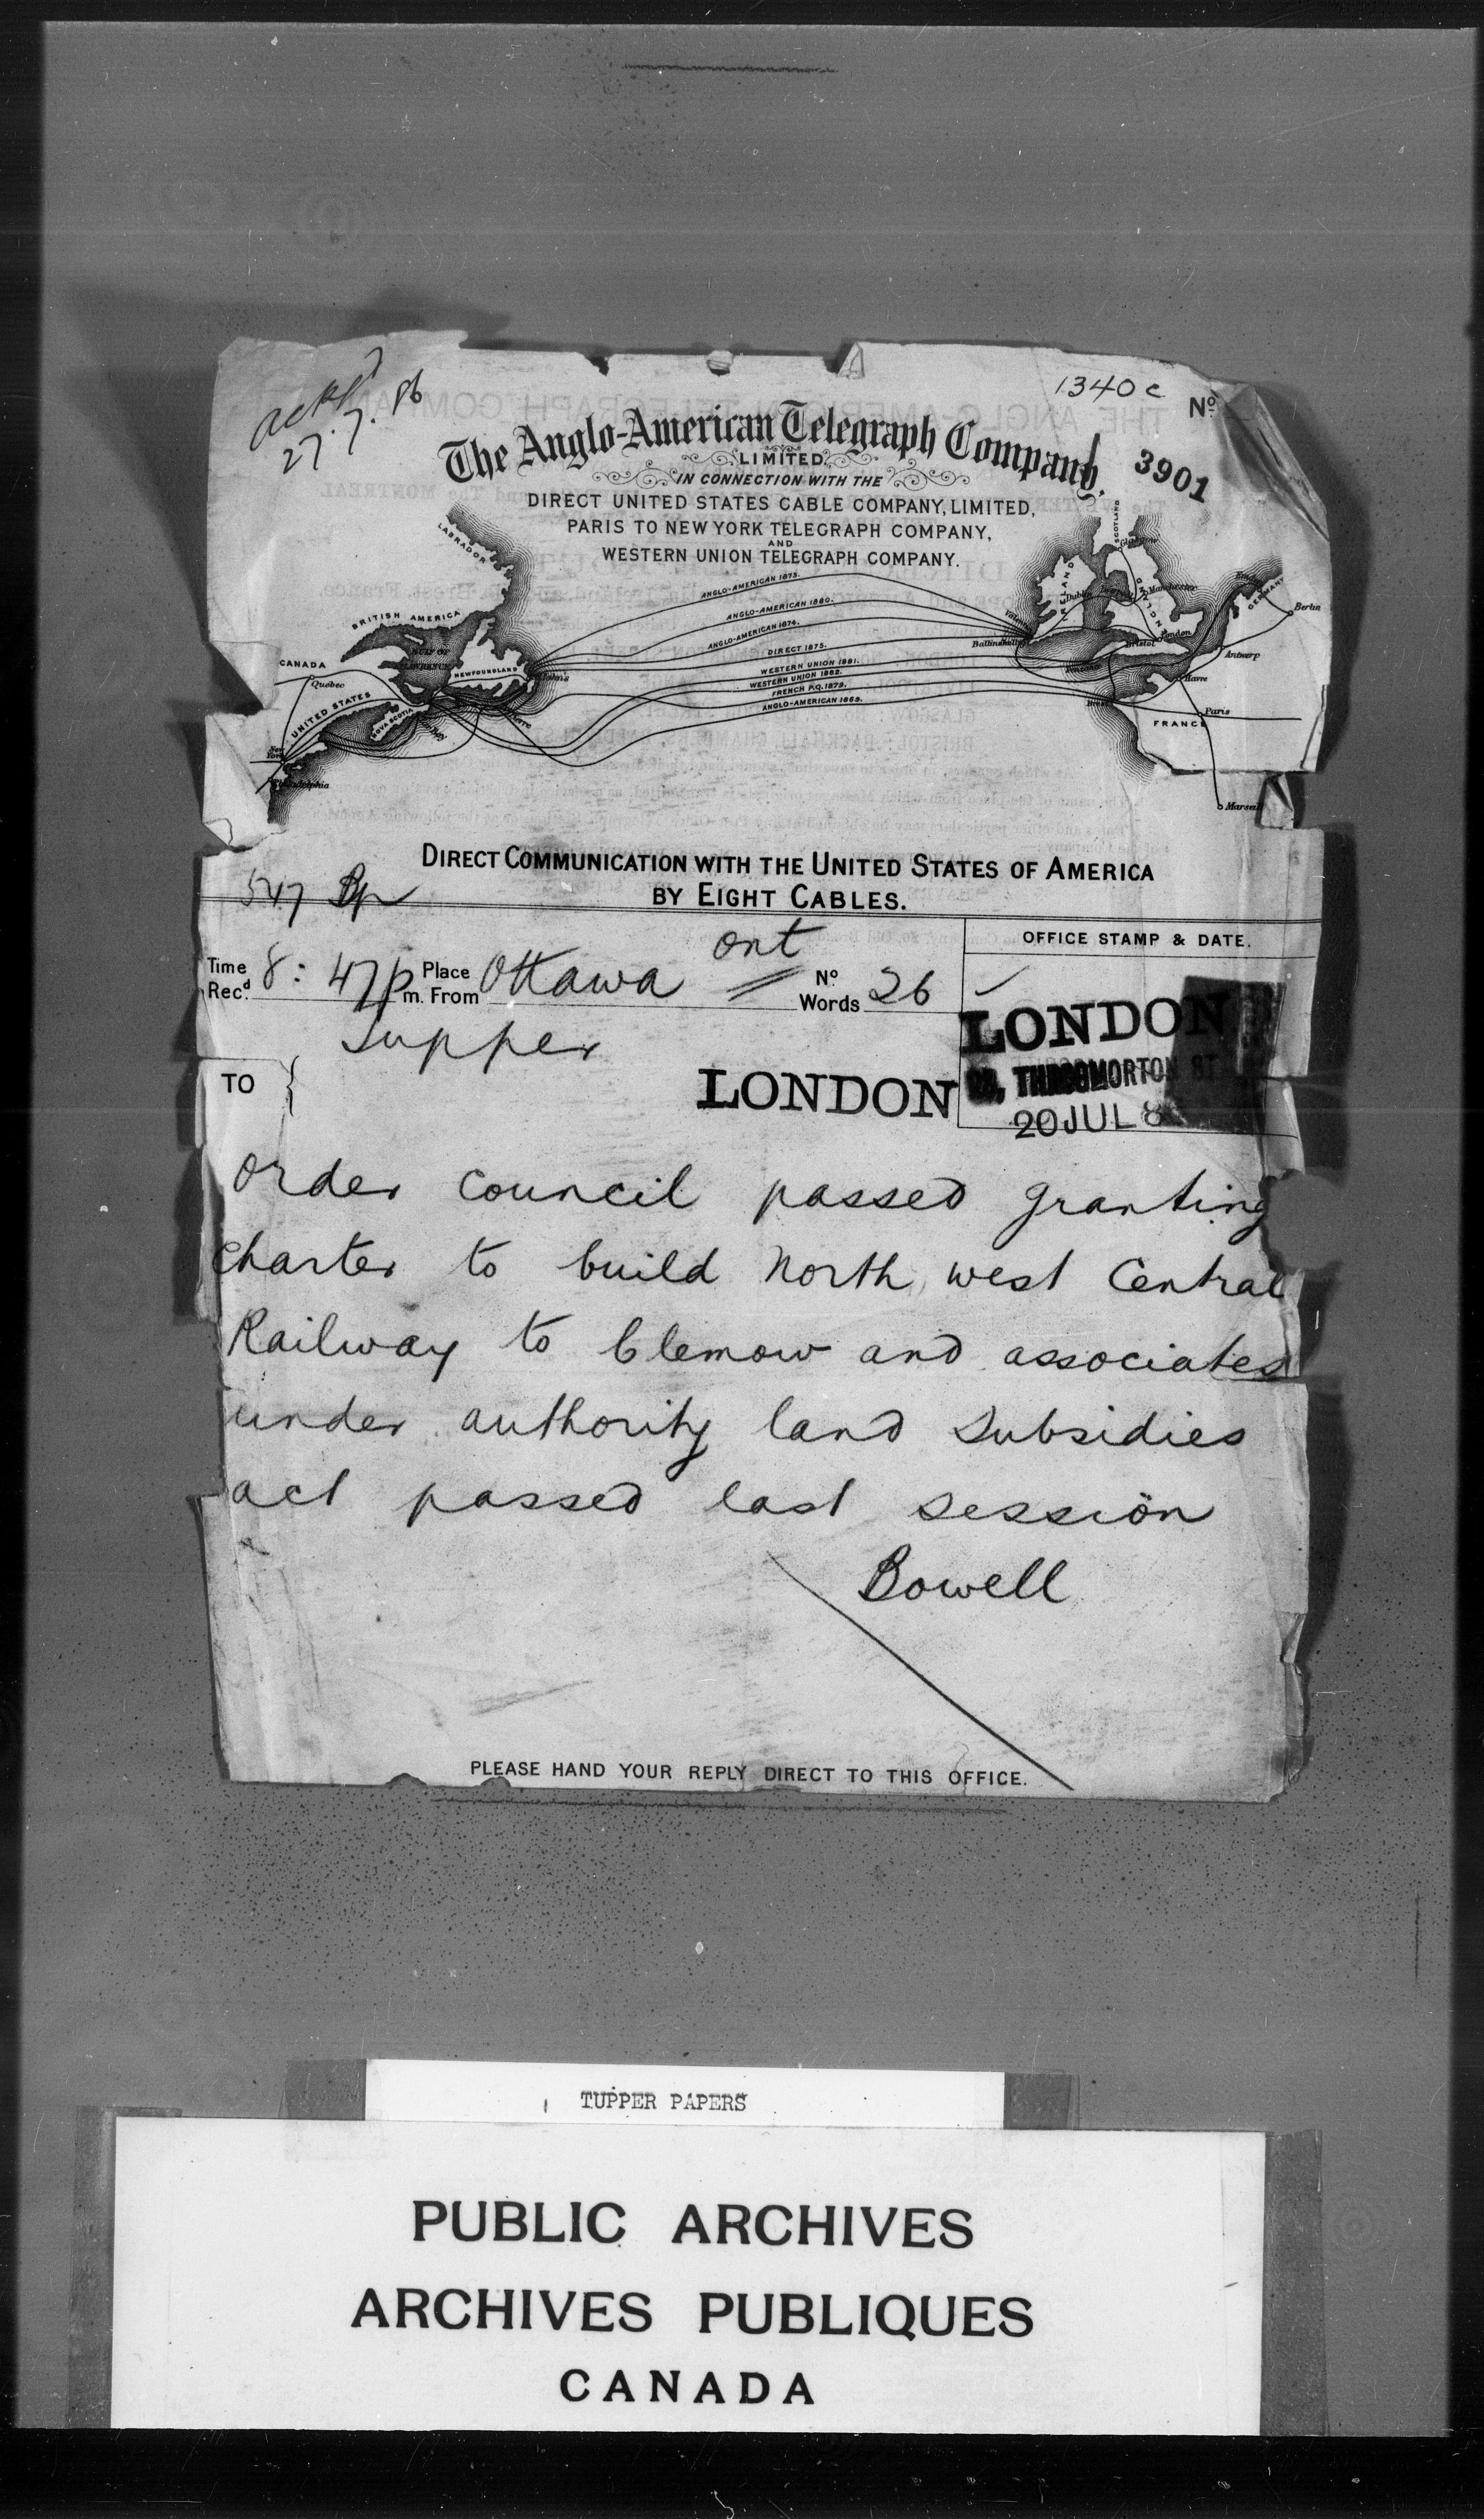 ackd
27.7.86
1340c
No.
3901
The Anglo-American Telegraph Company,
LIMITED.
IN CONNECTION WITH THE
DIRECT UNITED STATES CABLE COMPANY, LIMITED,
PARIS TO NEW YORK TELEGRAPH COMPANY,
AND
WESTERN UNION TELEGRAPH COMPANY.
LABRADOR
BRITISH AMERICA
GULF OF
ST LAWRENCE
CANADA
Quebec
NEWFOUNDLAND
St John's
UNITED STATES
NOVA SCOTIA
New York
Philadelphia
ANGLO-AMERICAN 1873.
ANGLO-AMERICAN 1880.
ANGLO-AMERICAN 1874.
DIRECT 1875.
WESTERN UNION 1881.
WESTERN UNION 1882.
FRENCH P.Q. 1879.
ANGLO-AMERICAN 1869.
SCOTLAND
Glasgow
IRELAND
Dublin
Manchester
London
Bristol
Antwerp
Havre
Brest
Paris
FRANCE
GERMANY
Berlin
Marseil
DIRECT COMMUNICATION WITH THE UNITED STATES OF AMERICA
BY EIGHT CABLES.
547
Time Recd. 8:47 p m. Place From Ottawa Ont No. Words 26
OFFICE STAMP & DATE.
LONDON
THROGMORTON ST
20 JUL 8
TO
Tupper
LONDON
Order council passed granting
charter to build North west Central
Railway to Clemow and associates
under authority land subsidies
act passed last session
Bowell
PLEASE HAND YOUR REPLY DIRECT TO THIS OFFICE.
TUPPER PAPERS
PUBLIC ARCHIVES
ARCHIVES PUBLIQUES
CANADA